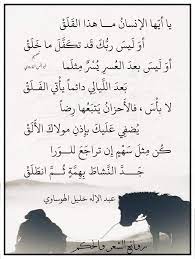 يا أيّها الإنسانُ مـــا هذا القَلَقْ
أوَ ليسَ ربُّكَ قد تكفَّلَ ما خَلَقْ
أوَ ليسَ بعدَ العسرِ يُسْرٌ مثلَما
بَعدَ اللَّيالي دائماً يأتي الفَلَقْ
لا بأسَ، فالأحزانُ يَتبَعُها رِضاً
يُضفي عَليكَ بإذنِ مولاكَ الألَقْ
كُن مِثلَ سَهْمٍ إن تراجَعَ للورا
جَـــدَّ النَّشاطَ بِهِمَّةٍ ثُـــمَّ انطَلَقْ
عبد الإله خليل الهوساوي
روائع الشعر والحكم